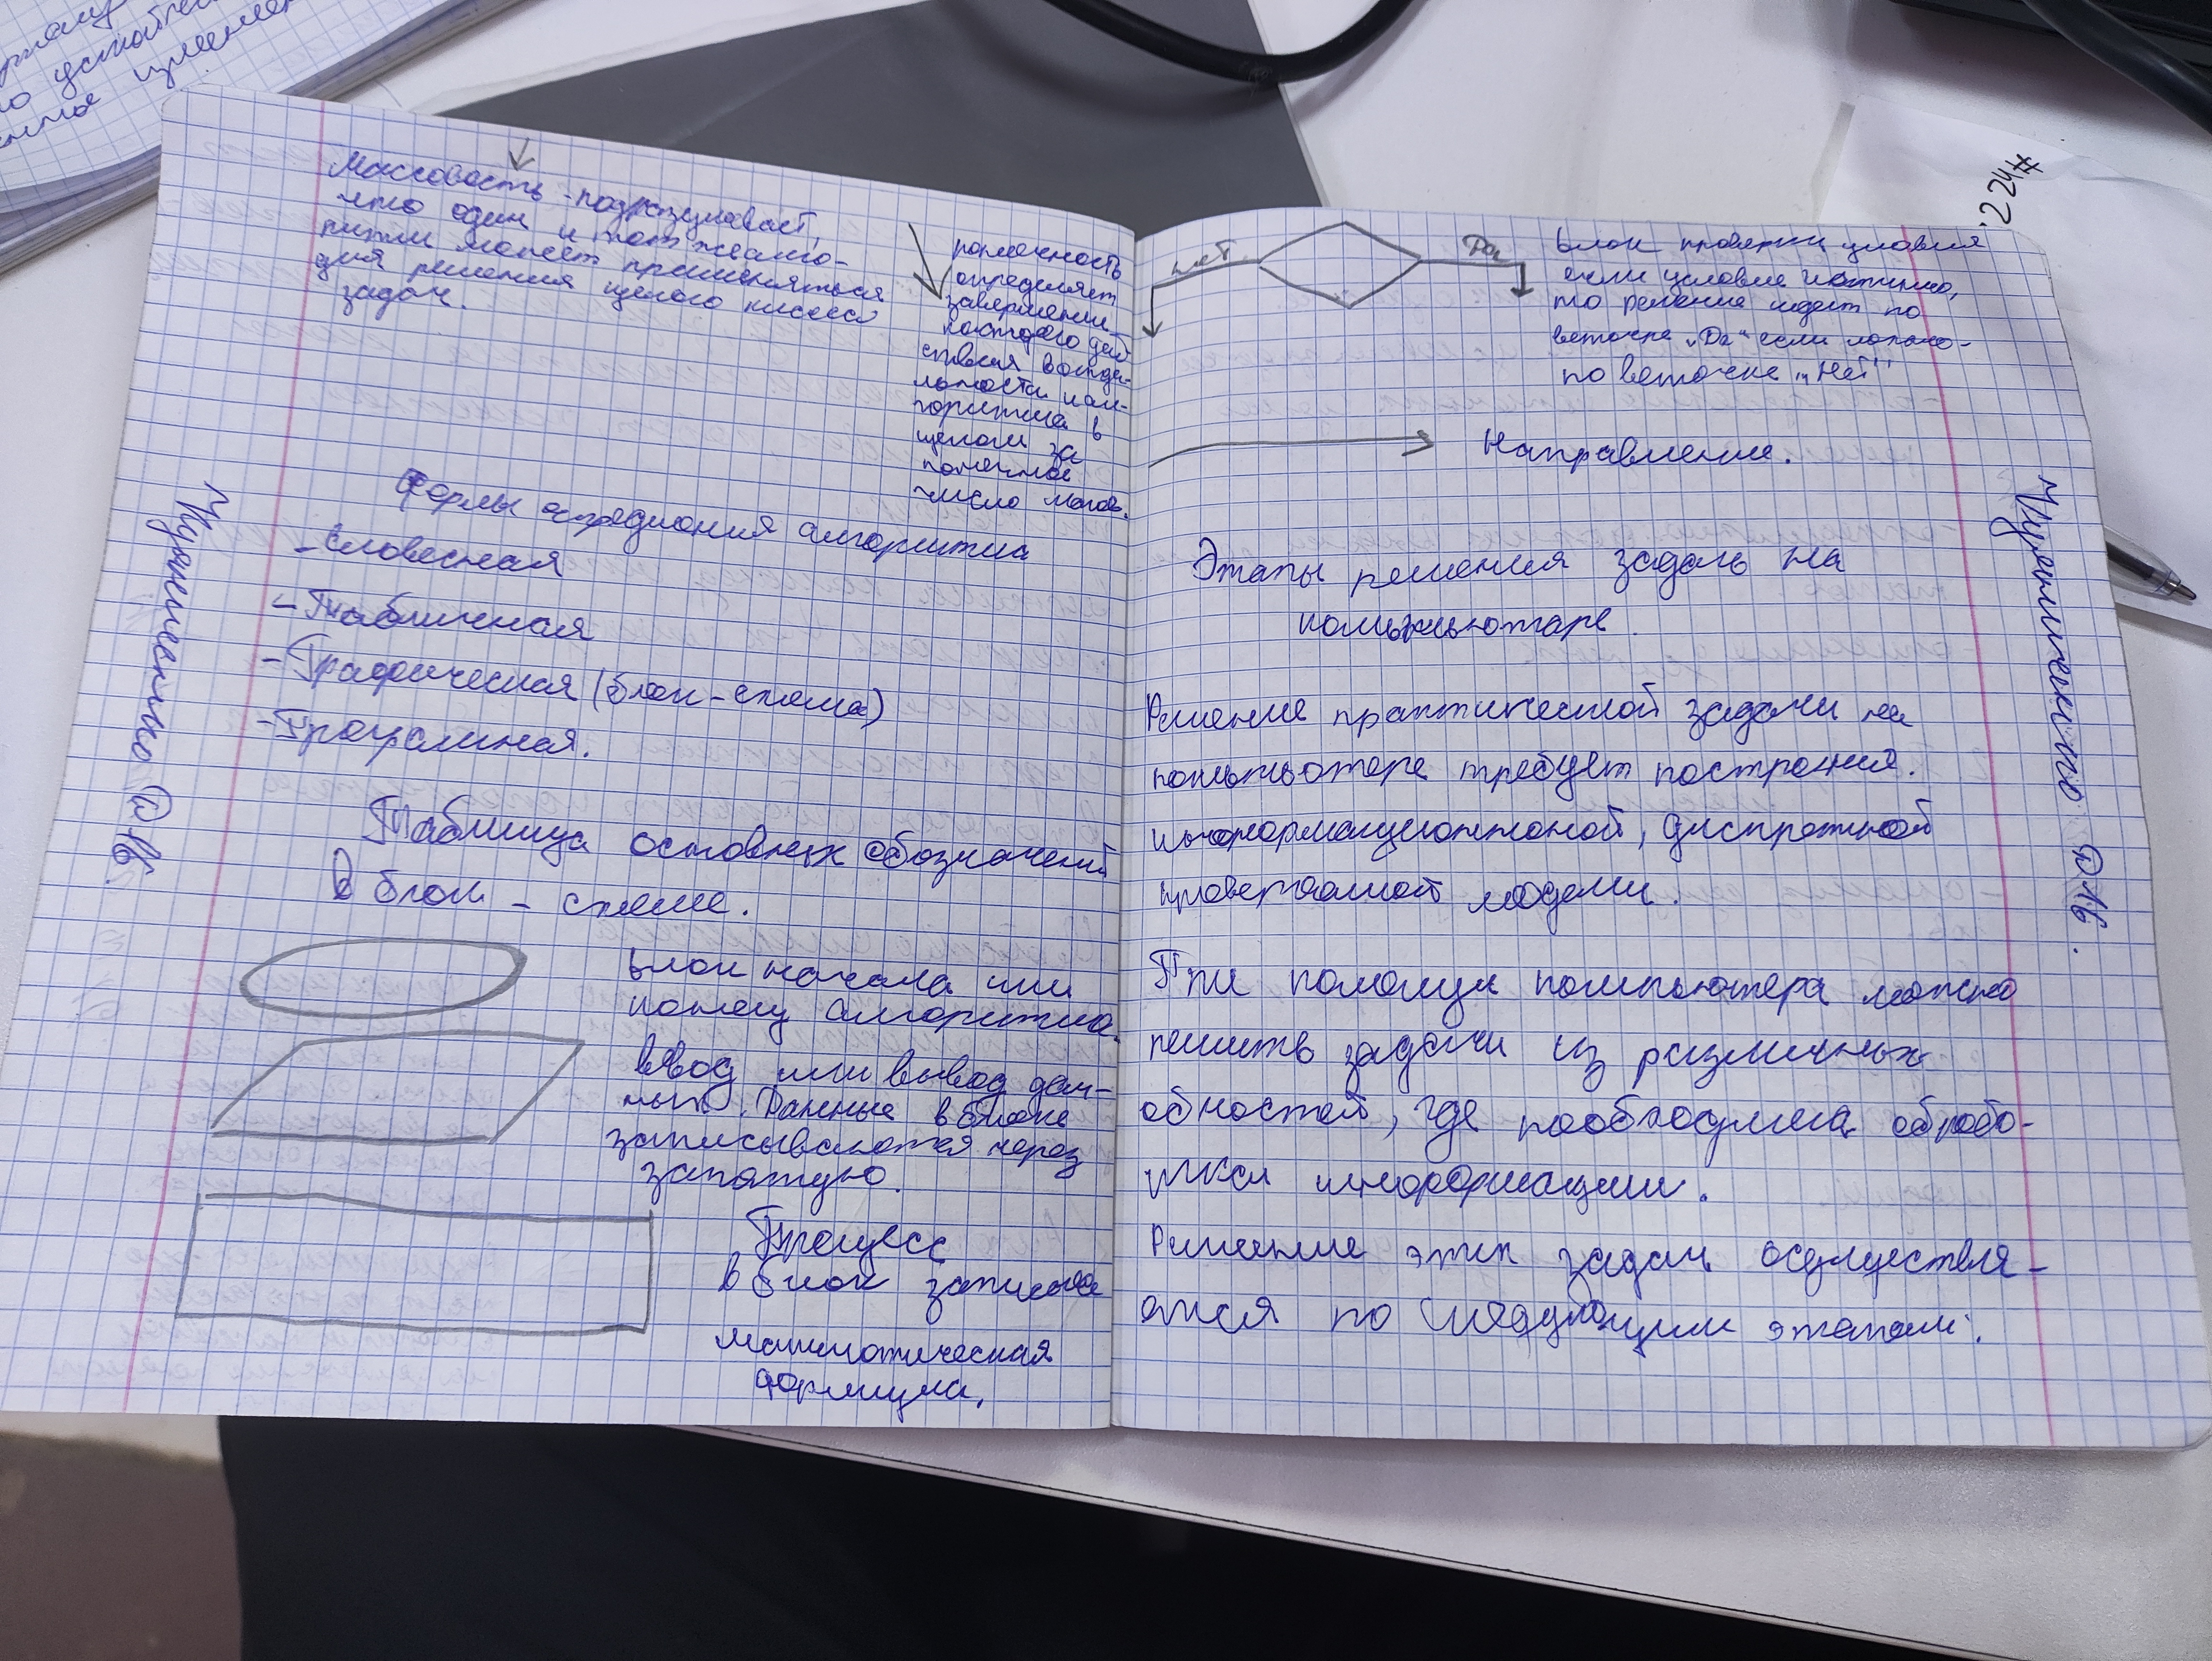 Массовость - подразумевает,
что один и тот же алго-
ритм может применяться
для решения целого класса
задач.
конечность
определяет
завершение
каждого дей
ствия в отде-
льности и ал-
горитма в
целом за
конечное
число шагов.
Формы алгоритма
- Словесная
- Табличная
- Графическая (блок-схема)
- Програмная.
Таблица основных обозначений
В блок - схеме.
Блок начала или
конец алгоритма.
Ввод или вывод дан-
ных. Данные в блоке
записываются через
запятую.
Процесс
в блок
математическая
формула.
нет
Да
Блок проверки условия
если условие истинно,
то решение идет по
веточке „Да“ если ложно-
по веточке „Нет"
Направление.
Этапы решения задач на
компьютаре
Решение практической задачи на
компьютере требует построения.
информационной, дискретной
модели.
При помощи компьютера можно
решить задачи из различных
обностей, где необходима обробо-
тка информации.
Решение этих задач осуществля-
ется по следующим этапам:
224